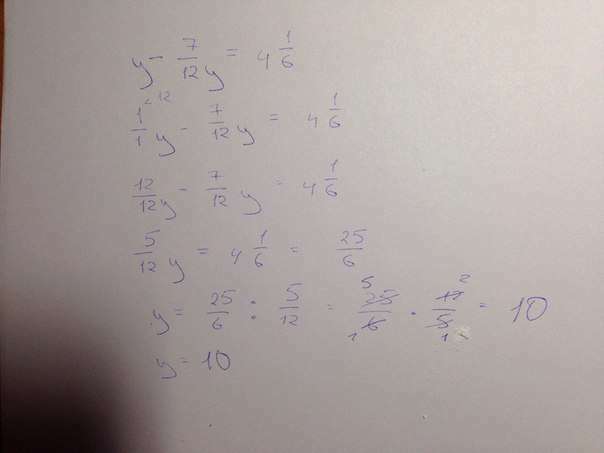 y - 7/12 y = 4 1/6
1/1 ^12 y - 7/12 y = 4 1/6
12/12 y - 7/12 y = 4 1/6
5/12 y = 4 1/6 = 25/6
y = 25/6 : 5/12 = 25 5/6 1 · 12 2/5 1 = 10
y = 10